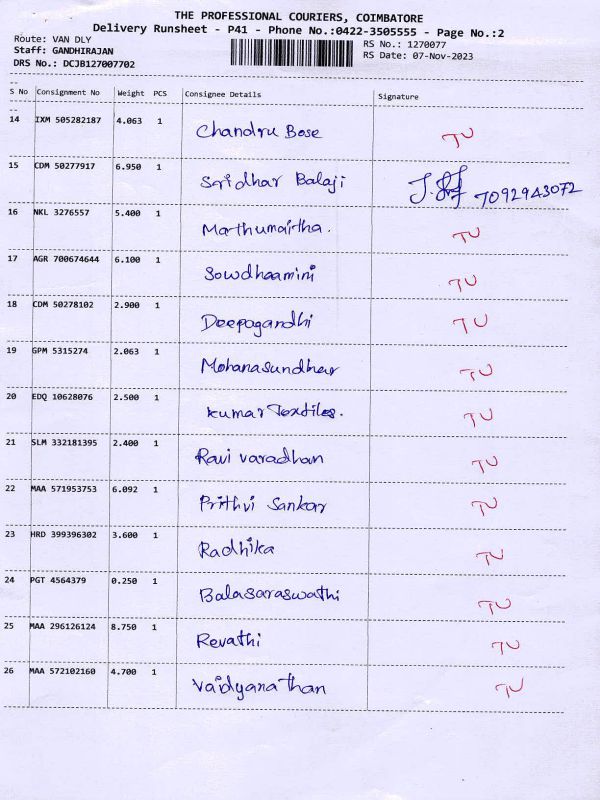 THE PROFESSIONAL COURIERS, COIMBATORE
Delivery Runsheet - P41 - Phone No.:0422-3505555 - Page No.:2
Route: VAN DLY RS No.: 1270077
Staff: GANDHIRAJAN RS Date: 07-Nov-2023
DRS No.: DCJB127007702
S No Consignment No Weight PCS Consignee Details Signature
14 IXM 505282187 4.063 1 Chandru Bose TU
15 CDM 50277917 6.950 1 Sridhar Balaji 7092943072
16 NKL 3276557 5.400 1 Mathumaitha. TU
17 AGR 700674644 6.100 1 Sowdhaamini TU
18 CDM 50278102 2.900 1 Deepagandhi TU
19 GPM 5315274 2.063 1 Mohanasundhar TU
20 EDQ 10628076 2.500 1 Kumar Textiles. TU
21 SLM 332181395 2.400 1 Ravi varadhan TU
22 MAA 571953753 6.092 1 Prithvi Sankar TU
23 HRD 399396302 3.600 1 Radhika TU
24 PGT 4564379 0.250 1 Balasaraswathi TU
25 MAA 296126124 8.750 1 Revathi TU
26 MAA 572102160 4.700 1 Vaidyanathan TU